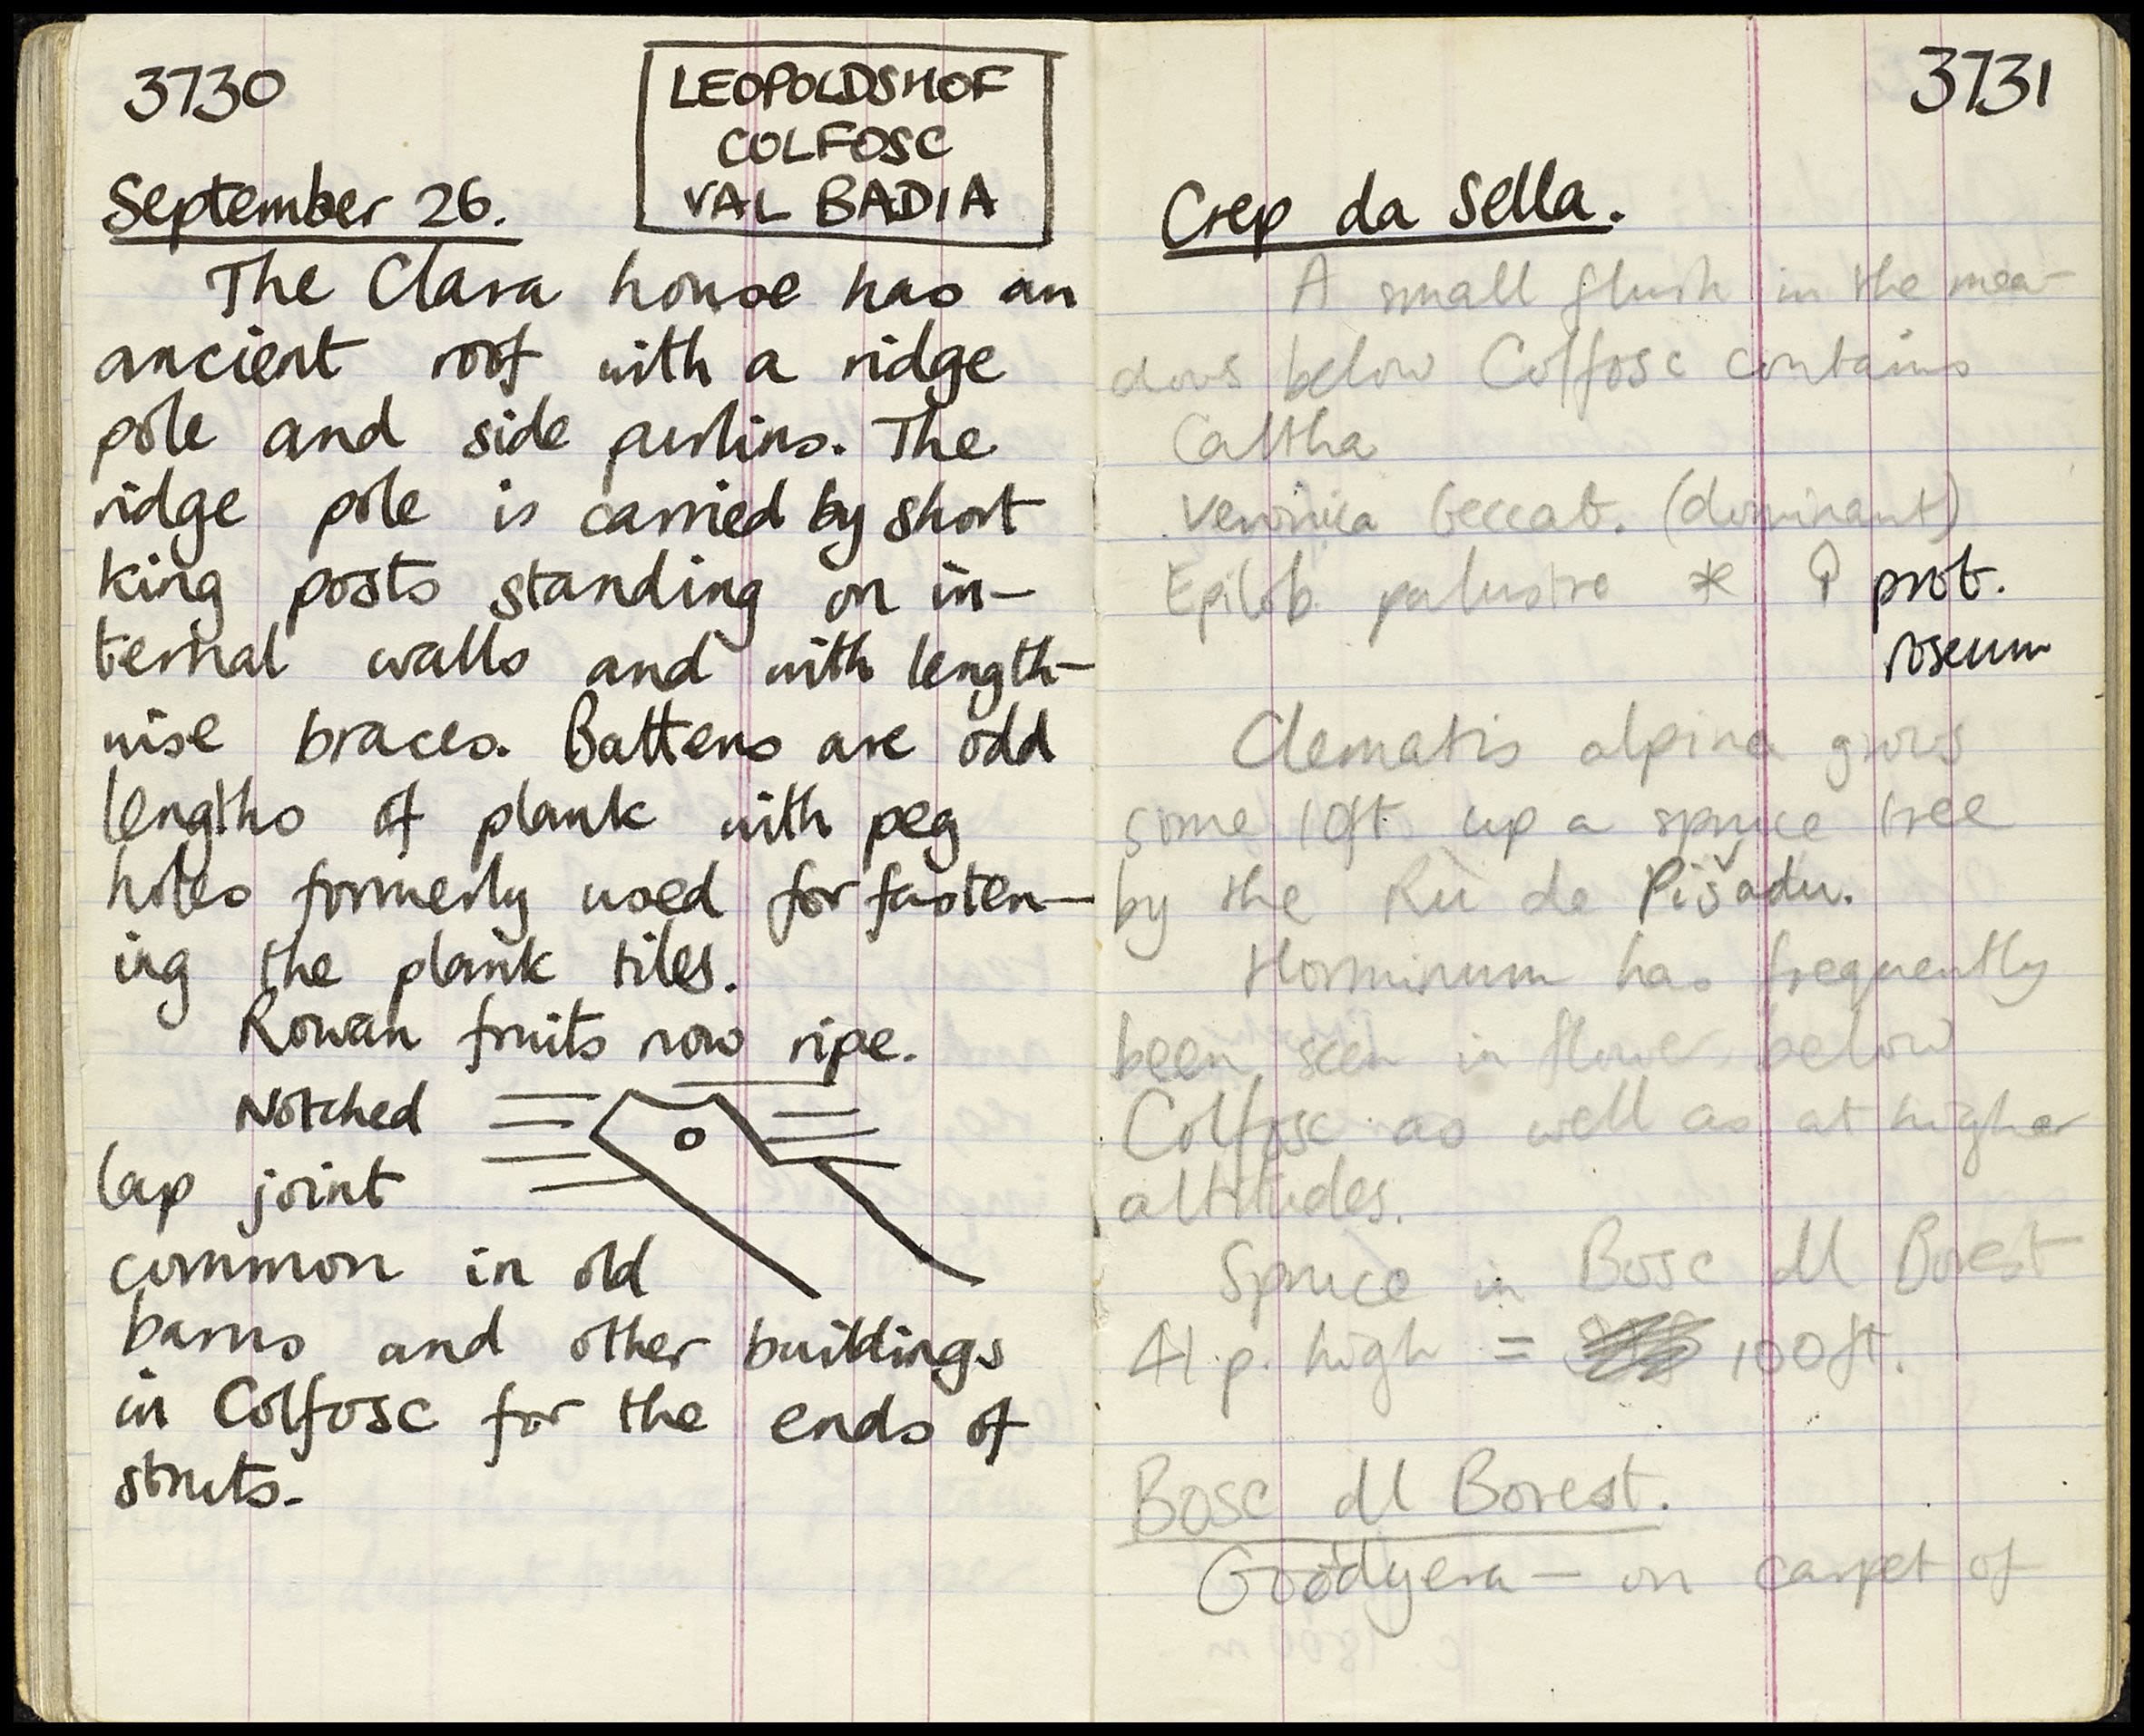 3730
LEOPOLDSHOF
COLFOSC
VAL BADIA
September 26.
The Clara house has an
ancient roof with a ridge
pole and side purlins. The
ridge pole is carried by short
king posts standing on in-
ternal walls and with length-
wise braces. Battens are odd
lengths of plank with peg
holes formerly used for fasten-
ing the plank tiles.
Rowan fruits now ripe.
Notched
lap joint
common in old
barns and other buildings
in Colfosc for the ends of
struts.
3731
Crep da Sella.
A small flush in the mea-
dows below Colfosc contains
Caltha
Veronica beccab. (dominant)
Epilob. palustre * prob.
roseum
Clematis alpina grows
some 10ft up a spruce tree
by the Rü de Pišadu.
Horminum has frequently
been seen in flower below
Colfosc as well as at higher
altitudes.
Spruce in Bosc dl Borest
41 p. high = 100ft.
Bosc dl Borest.
Goodyera — on carpet of